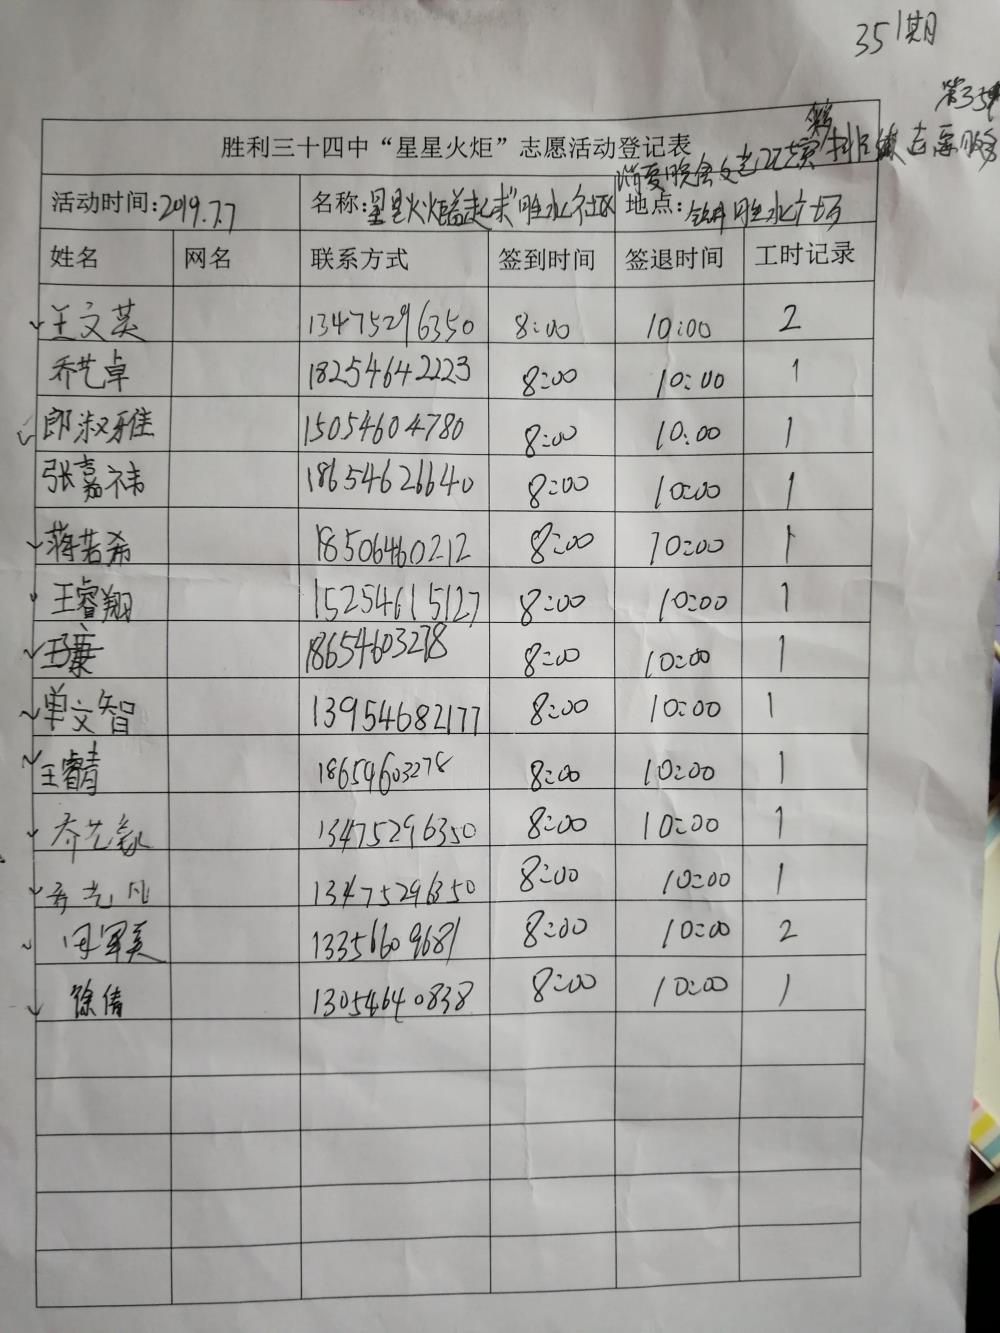 351期
第35
胜利三十四中“星星火炬”志愿活动登记表
消夏晚会文艺汇演 排练志愿服务
活动时间:2019.7.7 名称:星星火炬 起来”胜水社区 地点: 胜水广场
姓名 网名 联系方式 签到时间 签退时间 工时记录
王文英 13475296350 8:00 10:00 2
乔艺卓 18254642223 8:00 10:00 1
郎淑雅 15054604780 8:00 10:00 1
张嘉祎 18654626640 8:00 10:00 1
蒋若希 18506460212 8:00 10:00 1
王睿翔 15254615127 8:00 10:00 1
18654603278 8:00 10:00 1
单文智 13954682177 8:00 10:00 1
王睿清 18654603278 8:00 10:00 1
乔艺 13475296350 8:00 10:00 1
13475296350 8:00 10:00 1
13356609681 8:00 10:00 2
徐倩 13054640838 8:00 10:00 1